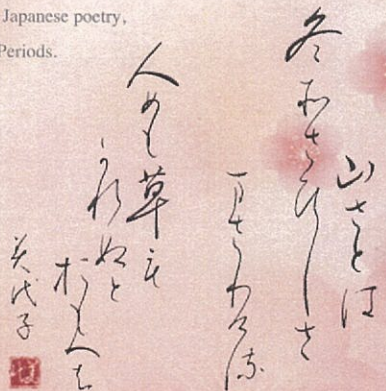 Japanese poetry,
Periods.
山さとは
冬そさひしさ
まさりける
人めも草も
かれぬと
おもへは